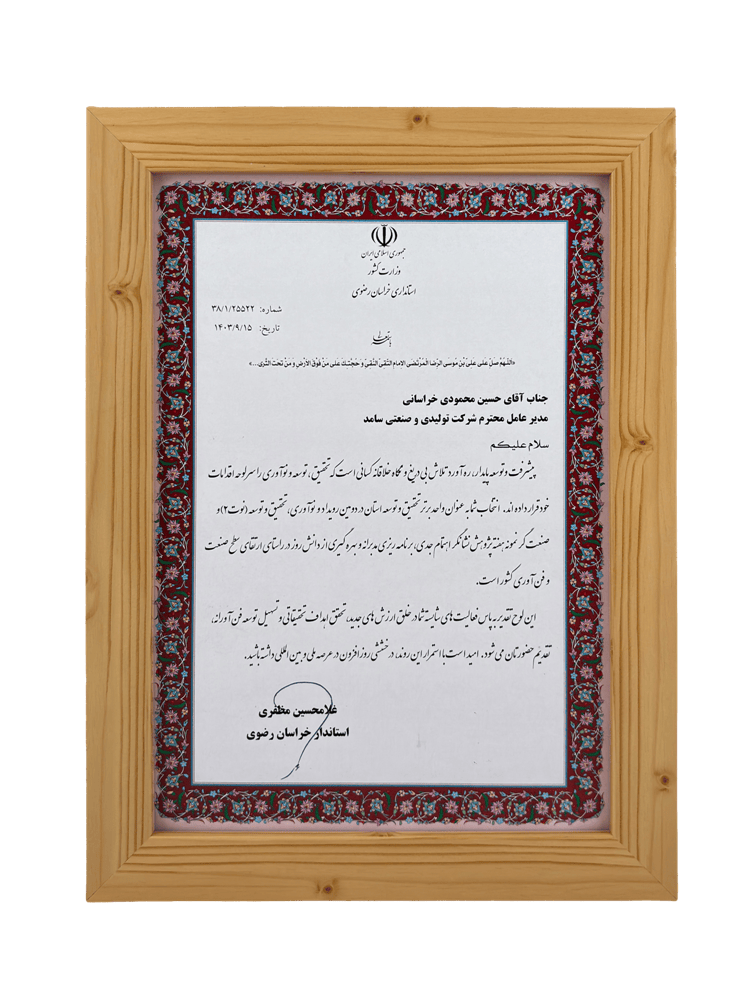 جمهوری اسلامی ایران
وزارت کشور
استانداری خراسان رضوی
شماره: ۳۸/۱/۲۵۵۲۲
تاریخ: ۱۴۰۳/۹/۱۵
«اللّهُمَّ صَلِّ عَلی عَلِیِّ بْنِ مُوسَی الرِّضَا الْمُرْتَضَی الاِمامِ التَّقِیِّ النَّقِیِّ وَ حُجَّتِکَ عَلی مَنْ فَوْقَ الأَرْضِ وَ مَنْ تَحْتَ الثَّری...»
جناب آقای حسین محمودی خراسانی
مدیر عامل محترم شرکت تولیدی و صنعتی سامد
سلام علیکم
پیشرفت و توسعه پایدار، ره آورد تلاش بی دریغ و نگاه خلاقانه کسانی است که تحقیق، توسعه و نوآوری را سرلوحه اقدامات
خود قرار داده اند. انتخاب شما به عنوان واحد برتر تحقیق و توسعه استان در دومین رویداد نوآوری، تحقیق و توسعه (نوت۲) و
صنعت گر نمونه هفته پژوهش نشانگر اهتمام جدی، برنامه ریزی مدبرانه و بهره گیری از دانش روز در راستای ارتقای سطح صنعت
و فن آوری کشور است.
این لوح تقدیر به پاس فعالیت های شایسته شما در خلق ارزش های جدید، تحقق اهداف تحقیقاتی و تسهیل توسعه فن آورانه،
تقدیم حضورتان می شود. امید است با استمرار این روند، درخششی روز افزون در عرصه ملی و بین المللی داشته باشید.
غلامحسین مظفری
استاندار خراسان رضوی